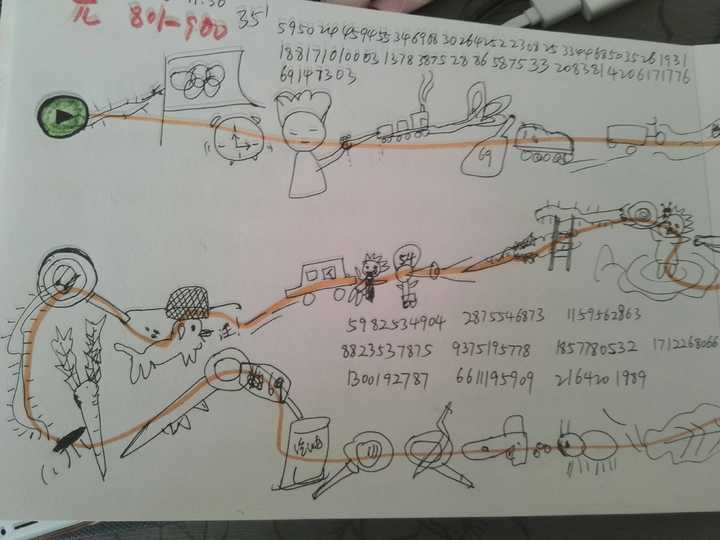 11:30
元 801-900 35'
5950244594553469083026425223082533446850352619 31
188171010003 1378 3875 28 86 5875 33 2083814206171776
69147303
69
54
注
5982534904 2875546873 1159562863
8823537875 9375195778 1857780532 1712268066
1300192787 6611195909 2164201989
69
汽油